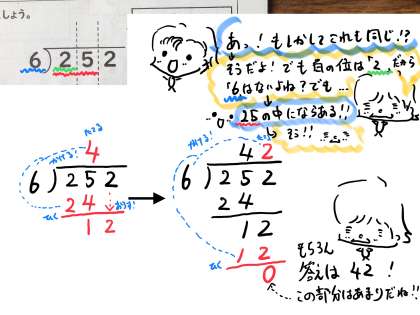 しょう。
6)252
あっ!もしかしてこれも同じ!?
そうだよ!でも百の位は「2」だから
「6はないよね?でも…
25の中にならある!!
そう!!
たてる
かける!
4
6)252
24
おろす!
ひく
12
かける!
42
6)252
24
12
12
ひく
0
もちろん
答えは42!
この部分はあまりだね!!